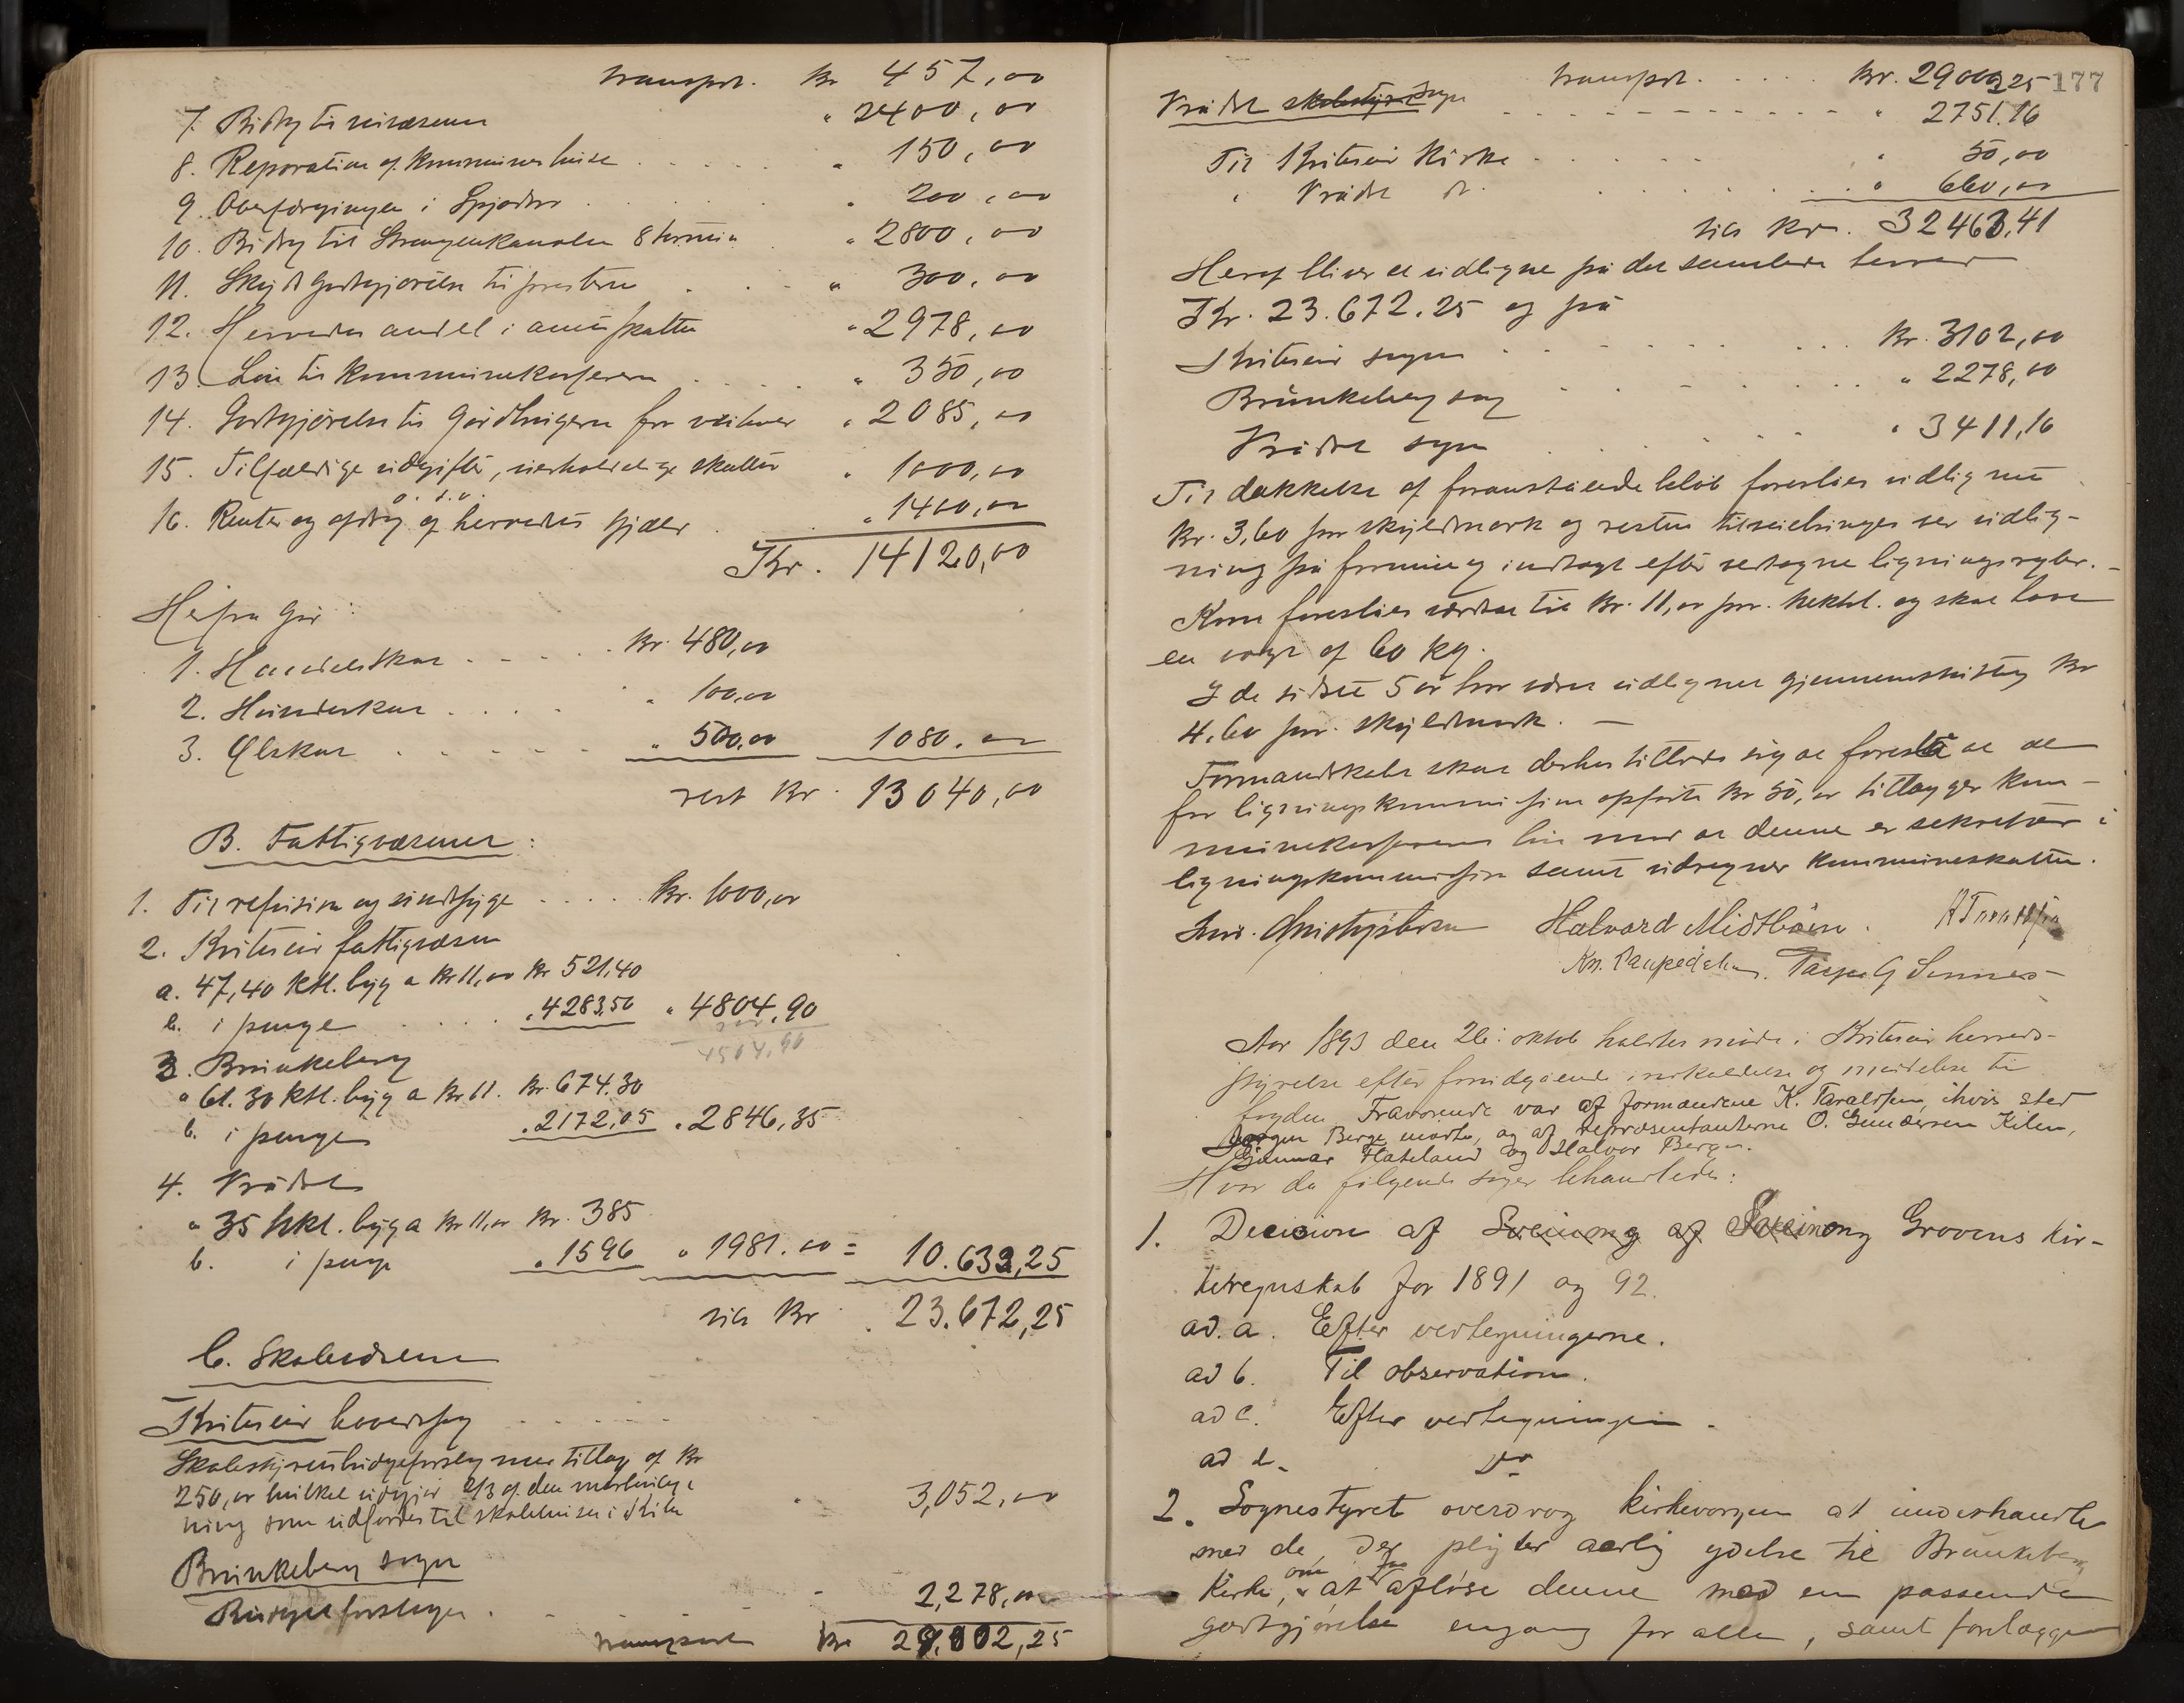 transport. Kr 457,00
7. Bidrag til veivæsenet " 2400,00
8. Reparation af kommunehuse . . . . " 150,00
9. Overfærgingen i Spjodso . . . . " 200,00
10. Bidrag til Strengenkanalen 8 termin " 2800,00
11. Skydsgodtgjørelse til presterne . . . " 300,00
12. Herredets andel i amtsskatten " 2978,00
13. Løn til kommunekassereren . . . . " 350,00
14. Godtgjørelse til Gårdbrugerne for veihold " 2085,00
15. Tilfældige udgifter, uerholdelige skatter " 1000,00
o. s. v.
16. Renter og afdrag af herredets gjæld . . " 1400,00
Kr. 14120,00
Herfra går:
1. Handelsskat . . . . . Kr. 480,00
2. Hundeskat . . . . " 100,00
3. Ølskat . . . . . " 500,00 1080.00
rest Kr. 13040,00
B. Fattigvæsenet:
1. Til refusion og sindssyge . . . . . Kr. 1000,00
2. Kviteseid fattigvæsen
a. 47,40 htl. byg a Kr 11,00 Kr 521,40
b. i penge . . . . " 4283,50 " 4804.90
4504,90
3. Brunkeberg
a 61.30 htl. byg a Kr 11. Kr. 674.30
b. i penge " 2172,05 " 2846,35
4. Vrådal
a 35 hkl. byg a Kr 11,00 Kr. 385
b. i penge " 1596 " 1981.00 = 10.632,25
tils Kr . 23.672,25
C. Skolevæsenet
Kviteseid hovedsogn . . . . . .
Skolestyrets budgetforslag med tillæg af Kr
250,00 hvilket udgjør 2/3 af den
ning som udfordres til skolehuset i Kilen " 3,052,00
Brunkeberg sogn
Budgetforslaget . " 2,278,00
transport Kr 29.002,25
177
transport . . . . . Kr. 29002,25
Vrådal skolestyre sogn . . . . . . . . " 2751.16
Til Kviteseid Kirke . . . . . . " 50,00
" Vrådal do. . . . . . . . " 660,00
tils Kr. 32463,41
Heraf bliver at udligne på det samlede herred
Kr. 23.672.25 og på
Kviteseid sogn . . . . . . . Kr. 3102,00
Brunkeberg sogn . . . . . . " 2278,00
Vrådal sogn . . . . . " 3411,16
Til dækkelse af foranstående beløb foreslåes udlignet
Kr. 3,60 per skyldmark og resten tilveiebringes ved udlig-
ning på formue og indtægt efter vedtagne ligningsregler. -
Korn foreslåes værdsat til Kr. 11,00 pr. hektol. og skal have
en vægt af 60 kg.
I de sidste 5 år har været udlignet gjennemsnitlig Kr
4,60 pr. skyldmark. -
Formandskabet skal derhos tillade sig at foreslå at de
for ligningskommissionen opførte Kr 50,00 tillægges kom-
munekassererens løn mod at denne er sekretær i
ligningskommissionen samt udregner kommuneskatten.
Halvard Midtbøen.
Aar 1893 den 26: oktob holdtes møde i Kviteseid herreds-
styrelse efter forudgående indkaldelse og meddelelse til
fogden. Fraværende var af formændene K. Taraldsen, i hvis sted
Jørgen Berge mødte, og af repræsentanterne O. Gundersen Kilen,
Gunnar Flateland og Halvor Berge.
Hvor da følgende sager behandledes:
1. Decision af Sveinung af Sveinung Grovens kir-
keregnskab for 1891 og 92.
ad. a. Efter vedtegningerne.
ad b. Til observation.
ad c. Efter vedtegningen.
ad d. Do
2. Sognestyret overdrog kirkevergen at underhandle
med de, der pligter aarlig ydelse til Brunkeberg
Kirke, om at afløse denne med en passende
godtgjørelse engang for alle, samt forelægge